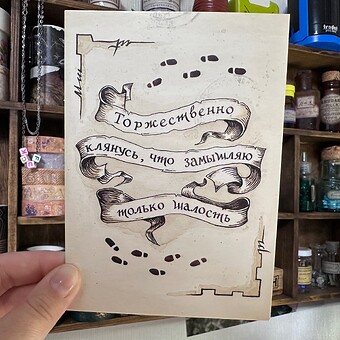 Торжественно
клянусь, что замышляю
только шалость